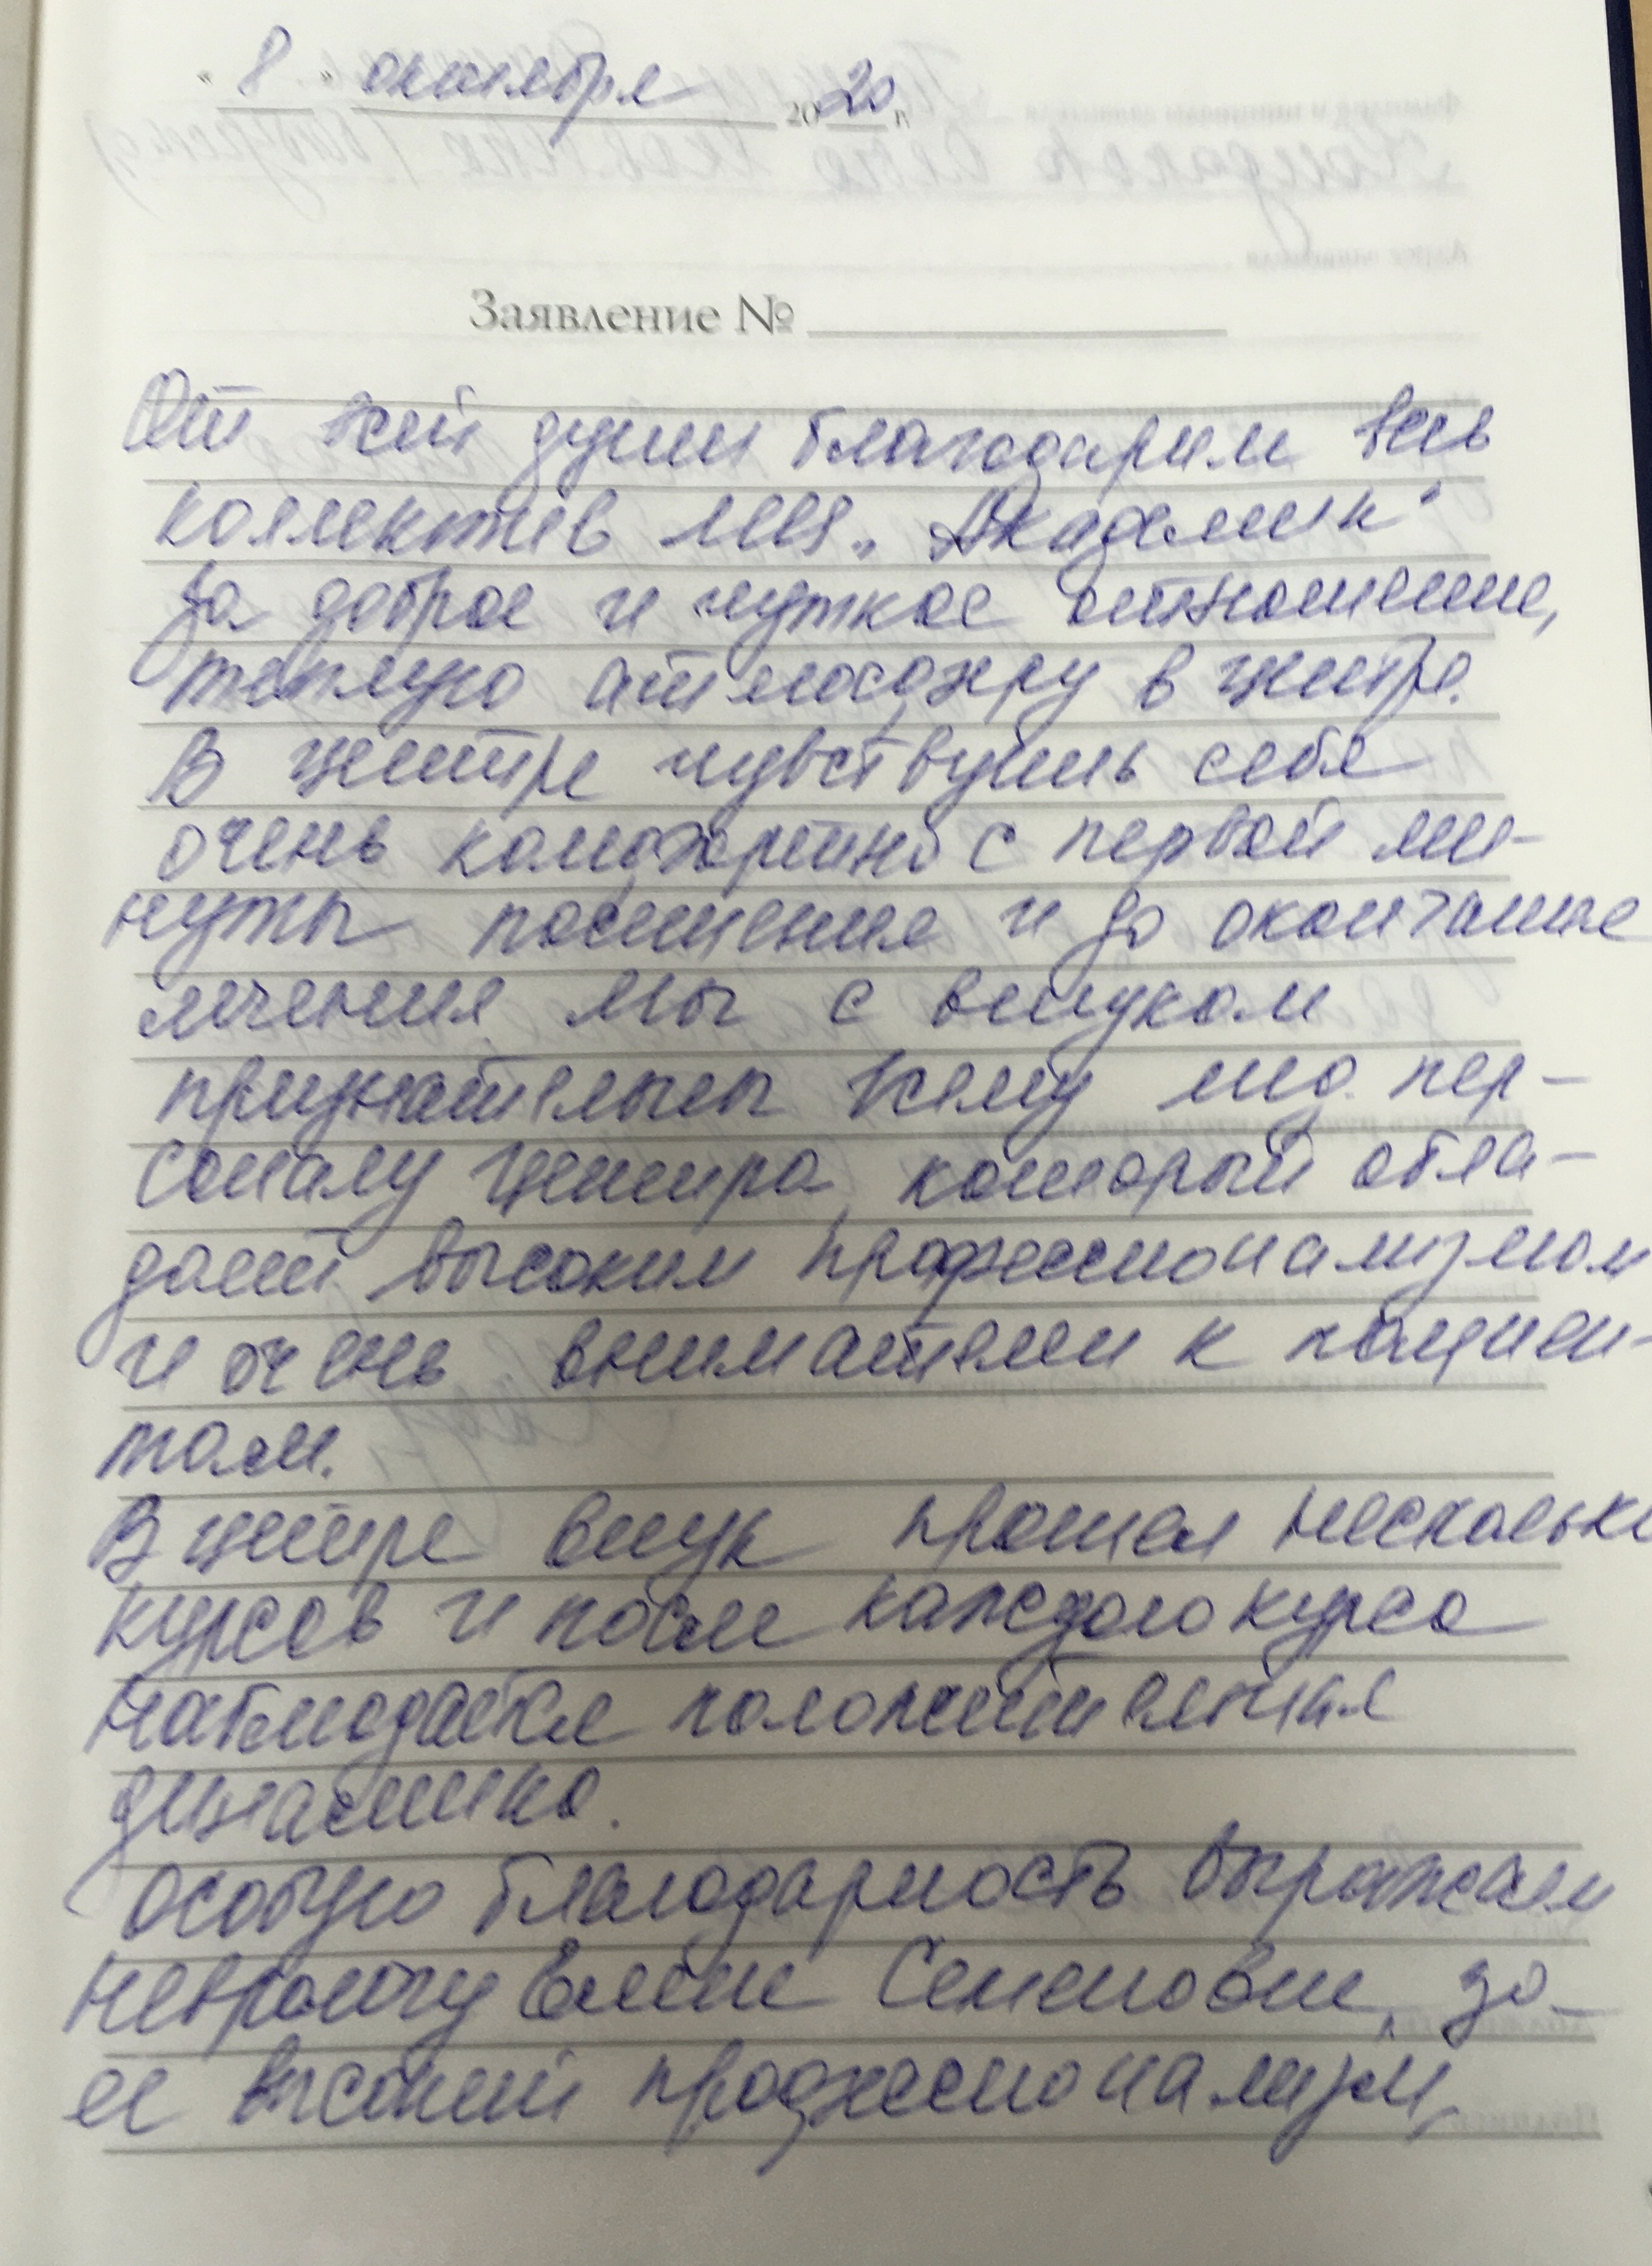 "8" октября 2020 г.
Заявление №
От всей души благодарим весь
коллектив „Академик"
за доброе и чуткое отношение,
теплую атмосферу в центре.
В центре чувствуешь себя
очень комфортно с первой ми-
нуты посещения и до окончания
лечения мы с внуком
признательны всему мед. пер-
соналу центра, который обла-
дает высоким профессионализмом
и очень внимателен к пациен-
там.
В центре внук прошел несколько
курсов и после каждого курса
наблюдается положительная
динамика.
Особую благодарность выражаем
неврологу Елене Семеновне, за
ее высокий профессионализм,